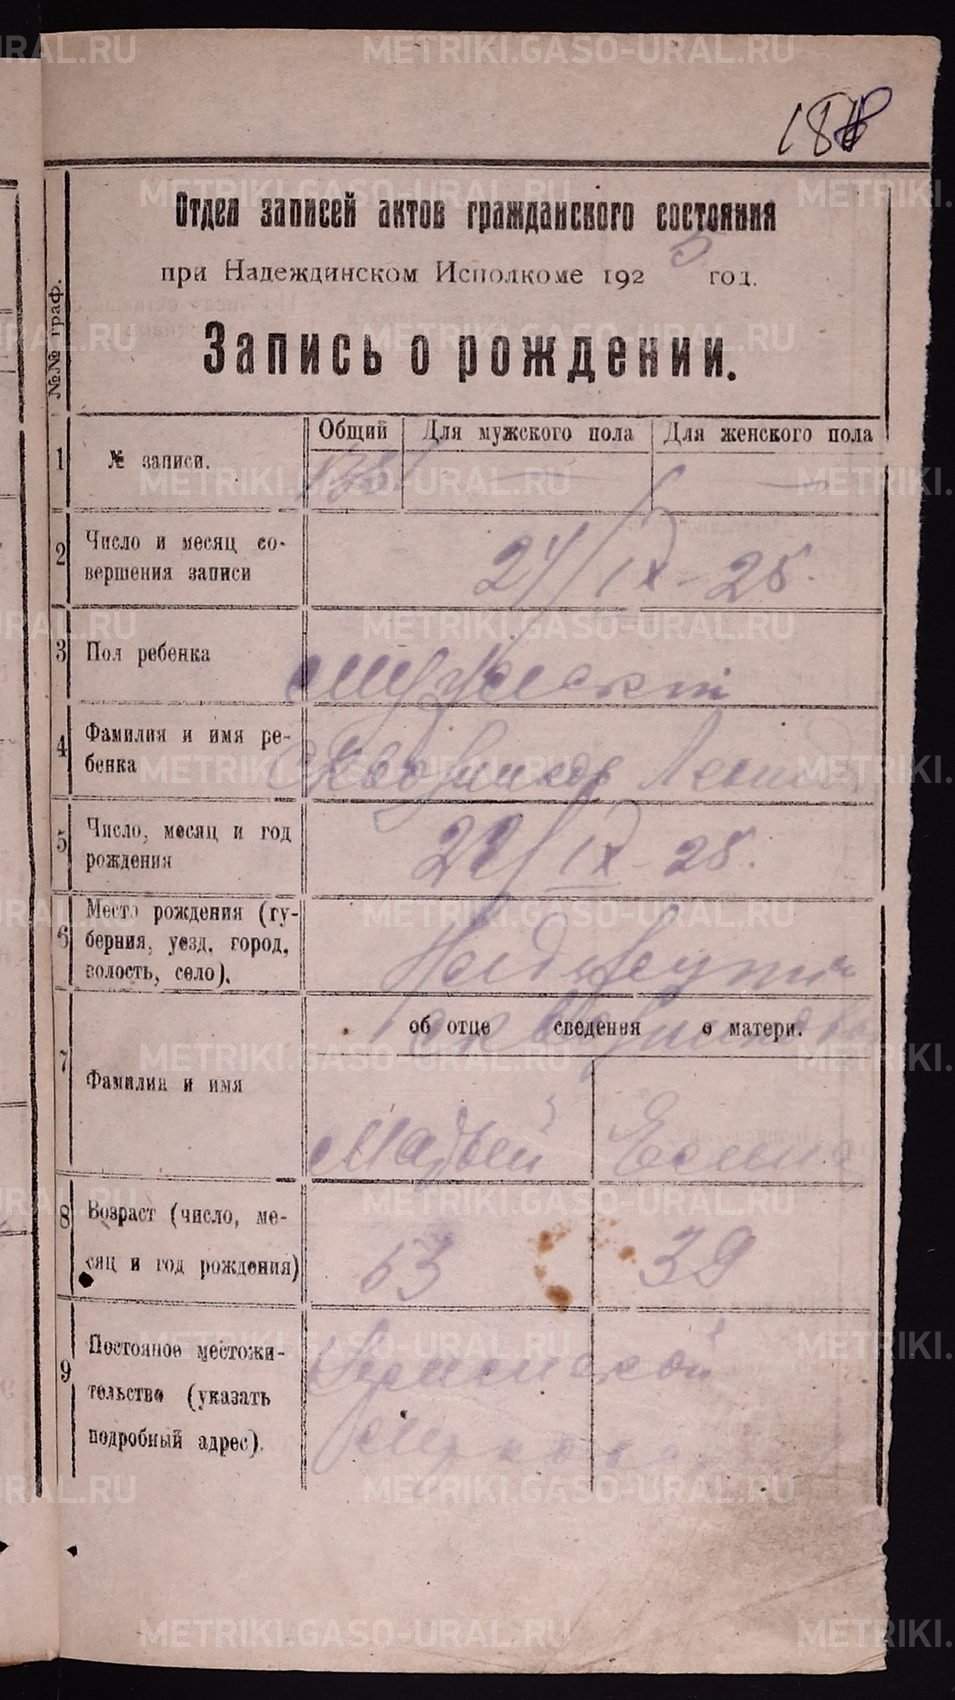 188
Отдел записей актов гражданского состояния
при Надеждинском Исполкоме 1925 год.
Запись о рождении.
№№ граф.
Общий Для мужского пола Для женского пола
1 № записи. — —
2 Число и месяц со-
вершения записи
24/IX - 25.
3 Пол ребенка
Мужской
4 Фамилия и имя ре-
бенка
5 Число, месяц и год
рождения
22/IX - 25.
6 Место рождения (гу-
берния, уезд, город,
волость, село).
об отце сведения о матери.
7 Фамилия и имя
Матвей Елена
8 Возраст (число, ме-
сяц и год рождения)
53 39
9 Постояное местожи-
тельство (указать
подробный адрес).
METRIKI.GASO-URAL.RU